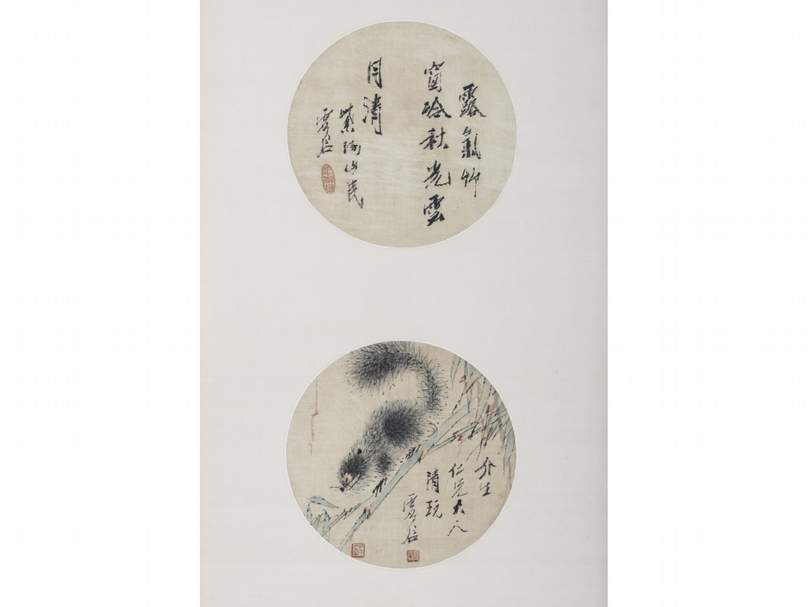 露氣竹
窗冷秋光雲
月清
紫陽山民
虛谷
介生
仁兄大人
清玩
虛谷